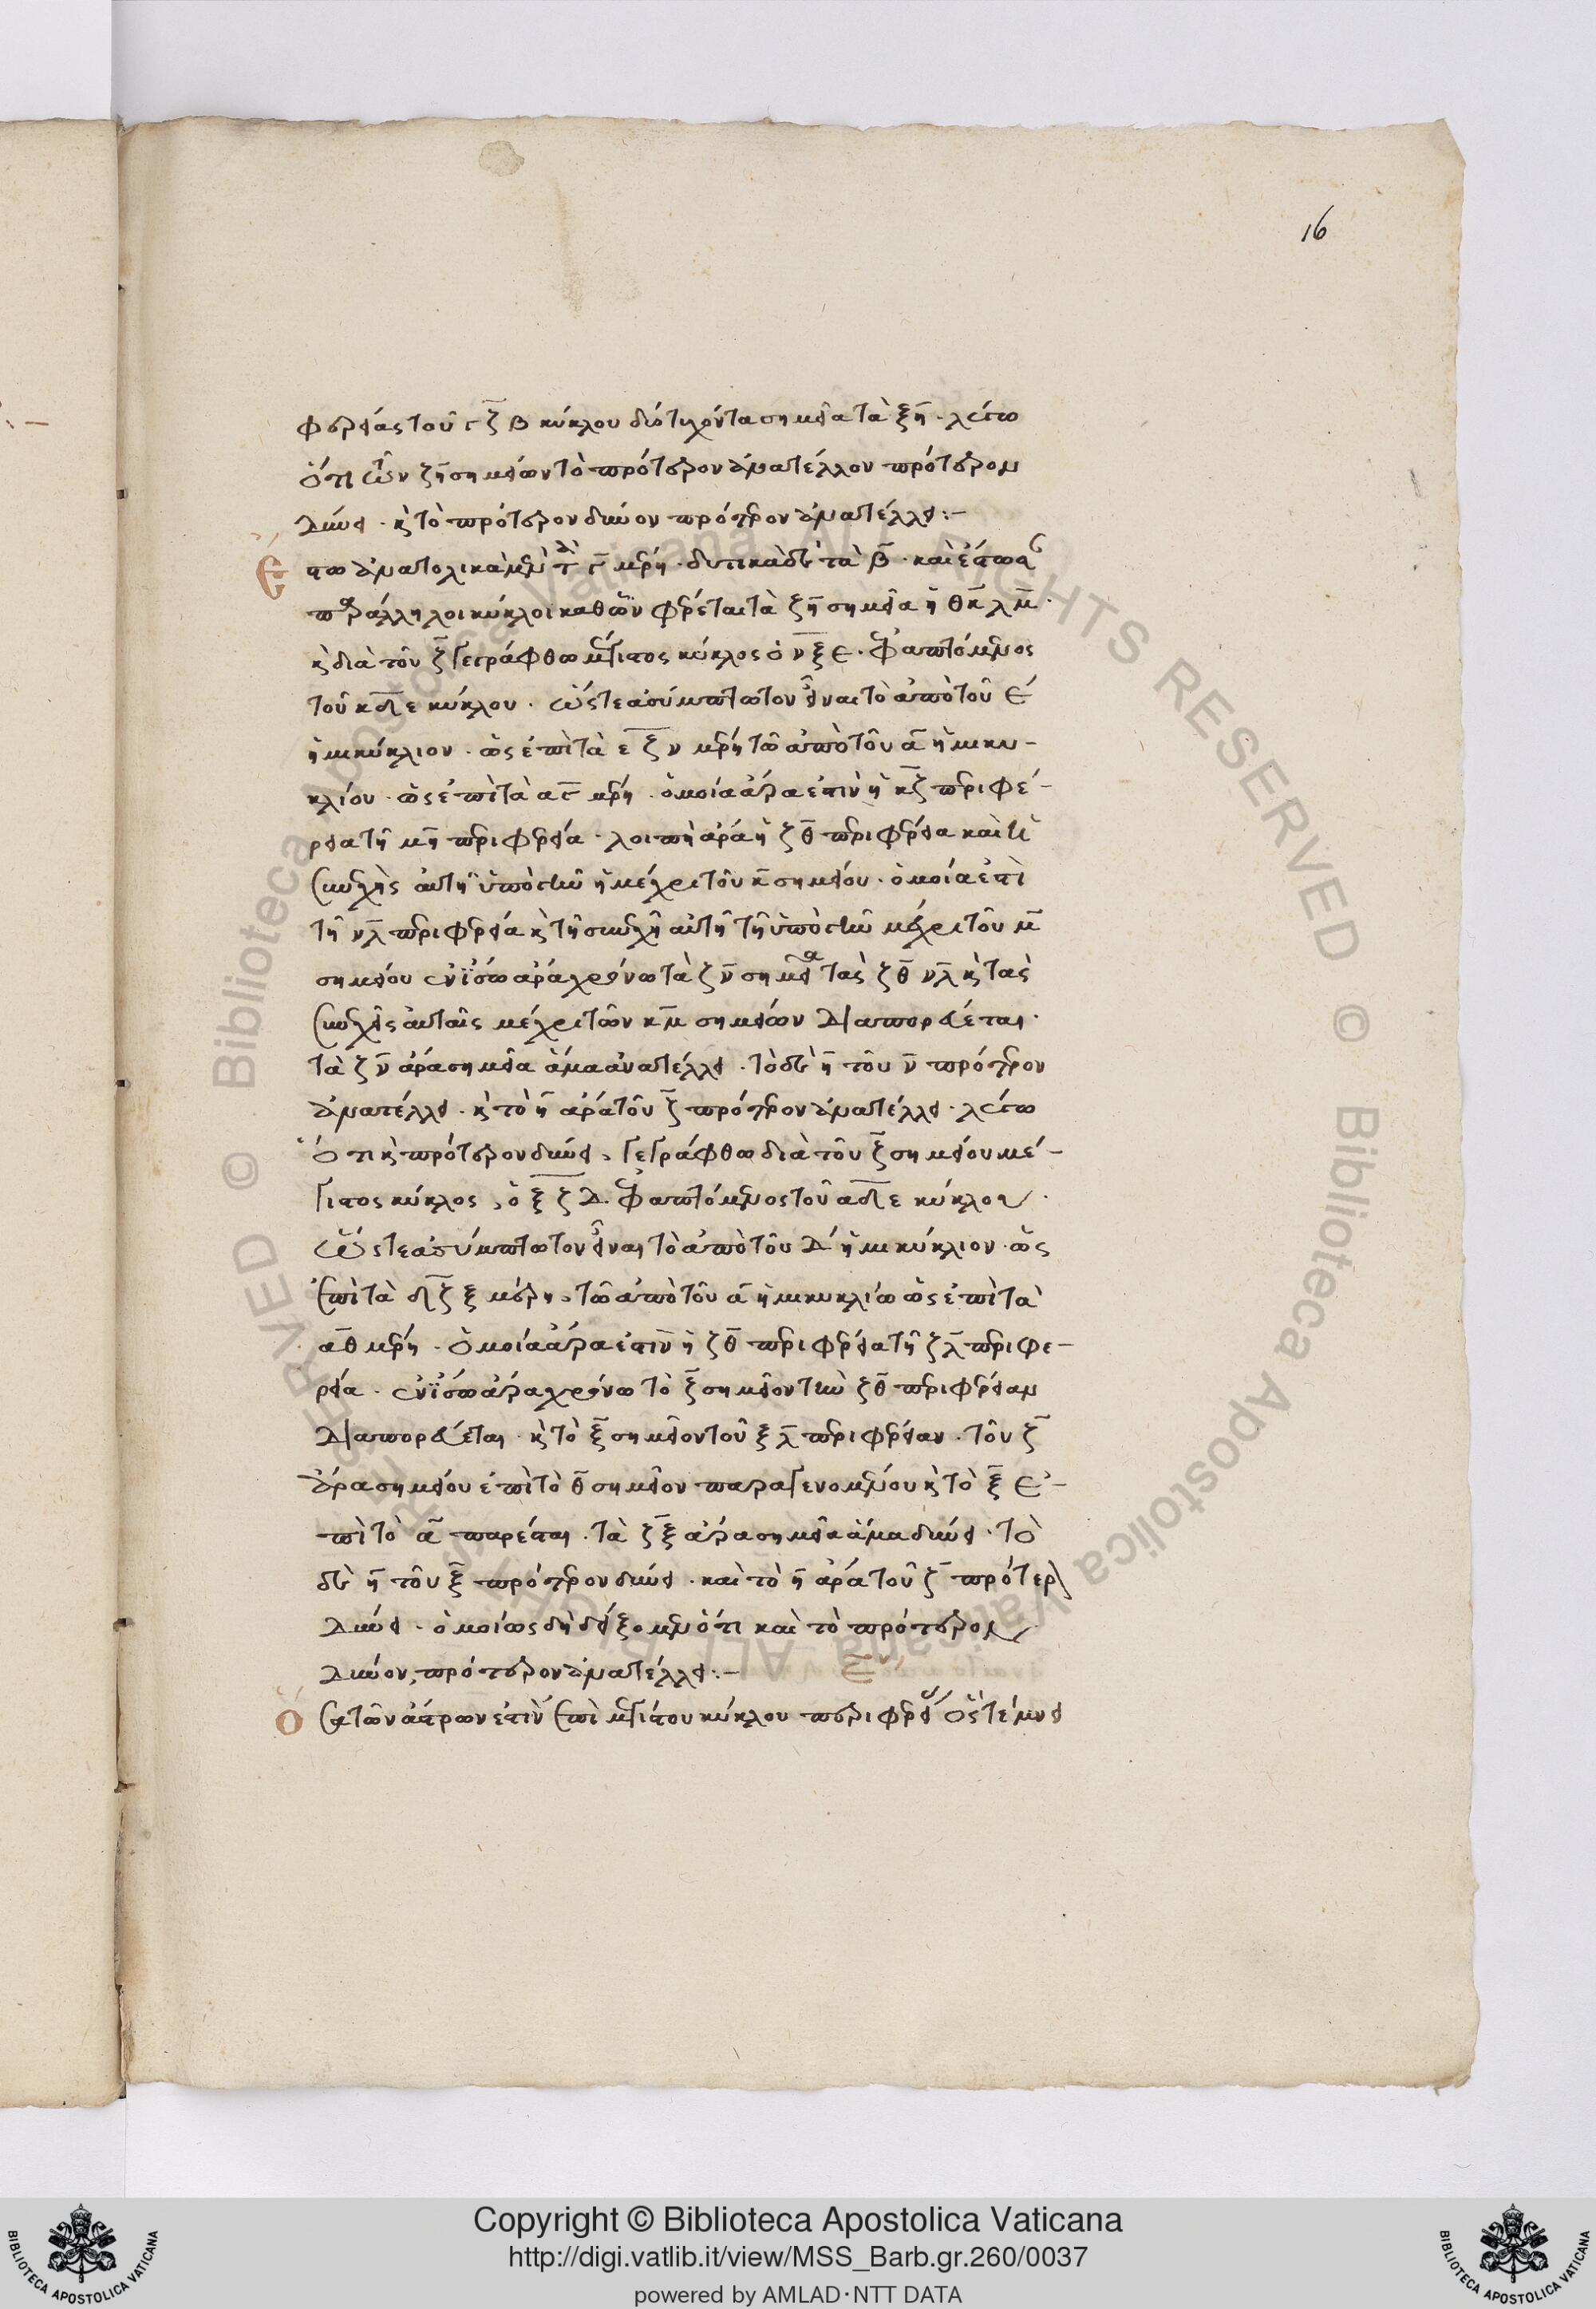 16
φερείας τοῦ γζβ κύκλου δύο τυχόντα σημεῖα τὰ ζη. λέγω
ὅτι τῶν ζη σημείων τὸ πρότερον ἀνατέλλον πρότερον
δύνει. κ τὸ πρότερον δῦνον πρότερον ἀνατέλλει:–
Ἔστω ἀνατολικὰ μὲν τὰ γ μέρη. δυτικὰ δὲ τὰ β. καὶ ἔστωσαν
παράλληλοι κύκλοι καθ ὧν φέρεται τὰ ζη σημεῖα ἡ θκ λμ.
κ διὰ τοῦ ζ γεγράφθω μέγιστος κύκλος ὁ νξε. ἐφαπτόμενος
τοῦ αδε κύκλου. ὥστε ἀσύμπτωτον εἶναι τὸ ἀπὸ τοῦ ε
ἡμικύκλιον. ὡς ἐπὶ τὰ εξν μέρη τῶ ἀπὸ τοῦ α ἡμικυ–
κλίου. ὡς ἐπὶ τὰ αγ μέρη. ὁμοία ἄρα ἐστὶν ἡ κζ περιφέ–
ρεια τῆ μν περιφερεία. λοιπὴ ἄρα ἡ ζθ περιφέρεια καὶ ἡ
συνεχὴς αὐτῆ ὑπὸ γῆν ἡ μέχρι τοῦ κ σημείου. ὁμοία ἐστὶ
τῆ νλ περιφερεία κ τῆ συνεχῆ αὐτῆ τῆ ὑπὸ γῆν μέχρι τοῦ μ
σημείου ἐν ἴσω ἄρα χρόνω τὰ ζν σημεῖα τὰς ζθ νλ κ τὰς
συνεχεῖς αὐταῖς μέχρι τῶν κμ σημείων διαπορεύεται.
τὰ ζν ἄρα σημεῖα ἅμα ἀνατέλλει. τὸ δὲ η τοῦ ν πρότερον
ἀνατέλλει. κ τὸ η ἄρα τοῦ ζ πρότερον ἀνατέλλει. λέγω
ὅτι κ πρότερον δύνει. γεγράφθω διὰ τοῦ ζ σημείου μέ–
γιστος κύκλος, ὁ ξζδ. ἐφαπτόμενος τοῦ αδε κύκλου.
ὥστε ἀσύμπτωτον εἶναι τὸ ἀπὸ τοῦ δ ἡμικύκλιον. ὡς
ἐπὶ τὰ δζξ μέρη, τῶ ἀπὸ τοῦ α ἡμικυκλίω ὡς ἐπὶ τὰ
αθ μέρη. ὁμοία ἄρα ἐστὶν ἡ ζθ περιφέρεια τῆ ξλ περιφε–
ρεία. ἐν ἴσω ἄρα χρόνω τὸ ζ σημεῖον τὴν ζθ περιφέρειαν
διαπορεύεται. κ τὸ ξ σημεῖον τοῦ ξλ περιφέρειαν. τοῦ ζ
ἄρα σημείου ἐπὶ τὸ θ σημεῖον παραγενομένου κ τὸ ξ ἐ–
πὶ τὸ λ παρέσται. τὰ ζξ ἄρα σημεῖα ἅμα δύνει. τὸ
δὲ η τοῦ ξ πρότερον δύνει. καὶ τὸ η ἄρα τοῦ ζ πρότερον
δύνει. ὁμοίως δὴ δείξομεν ὅτι καὶ τὸ πρότερον
δῦνον, πρότερον ἀνατέλλει:–
Ὅσα τῶν ἄστρων ἐστὶν ἐπὶ μεγίστου κύκλου περιφερείας ὃς τέμνει
Copyright © Biblioteca Apostolica Vaticana
http://digi.vatlib.it/view/MSS_Barb.gr.260/0037
powered by AMLAD·NTT DATA